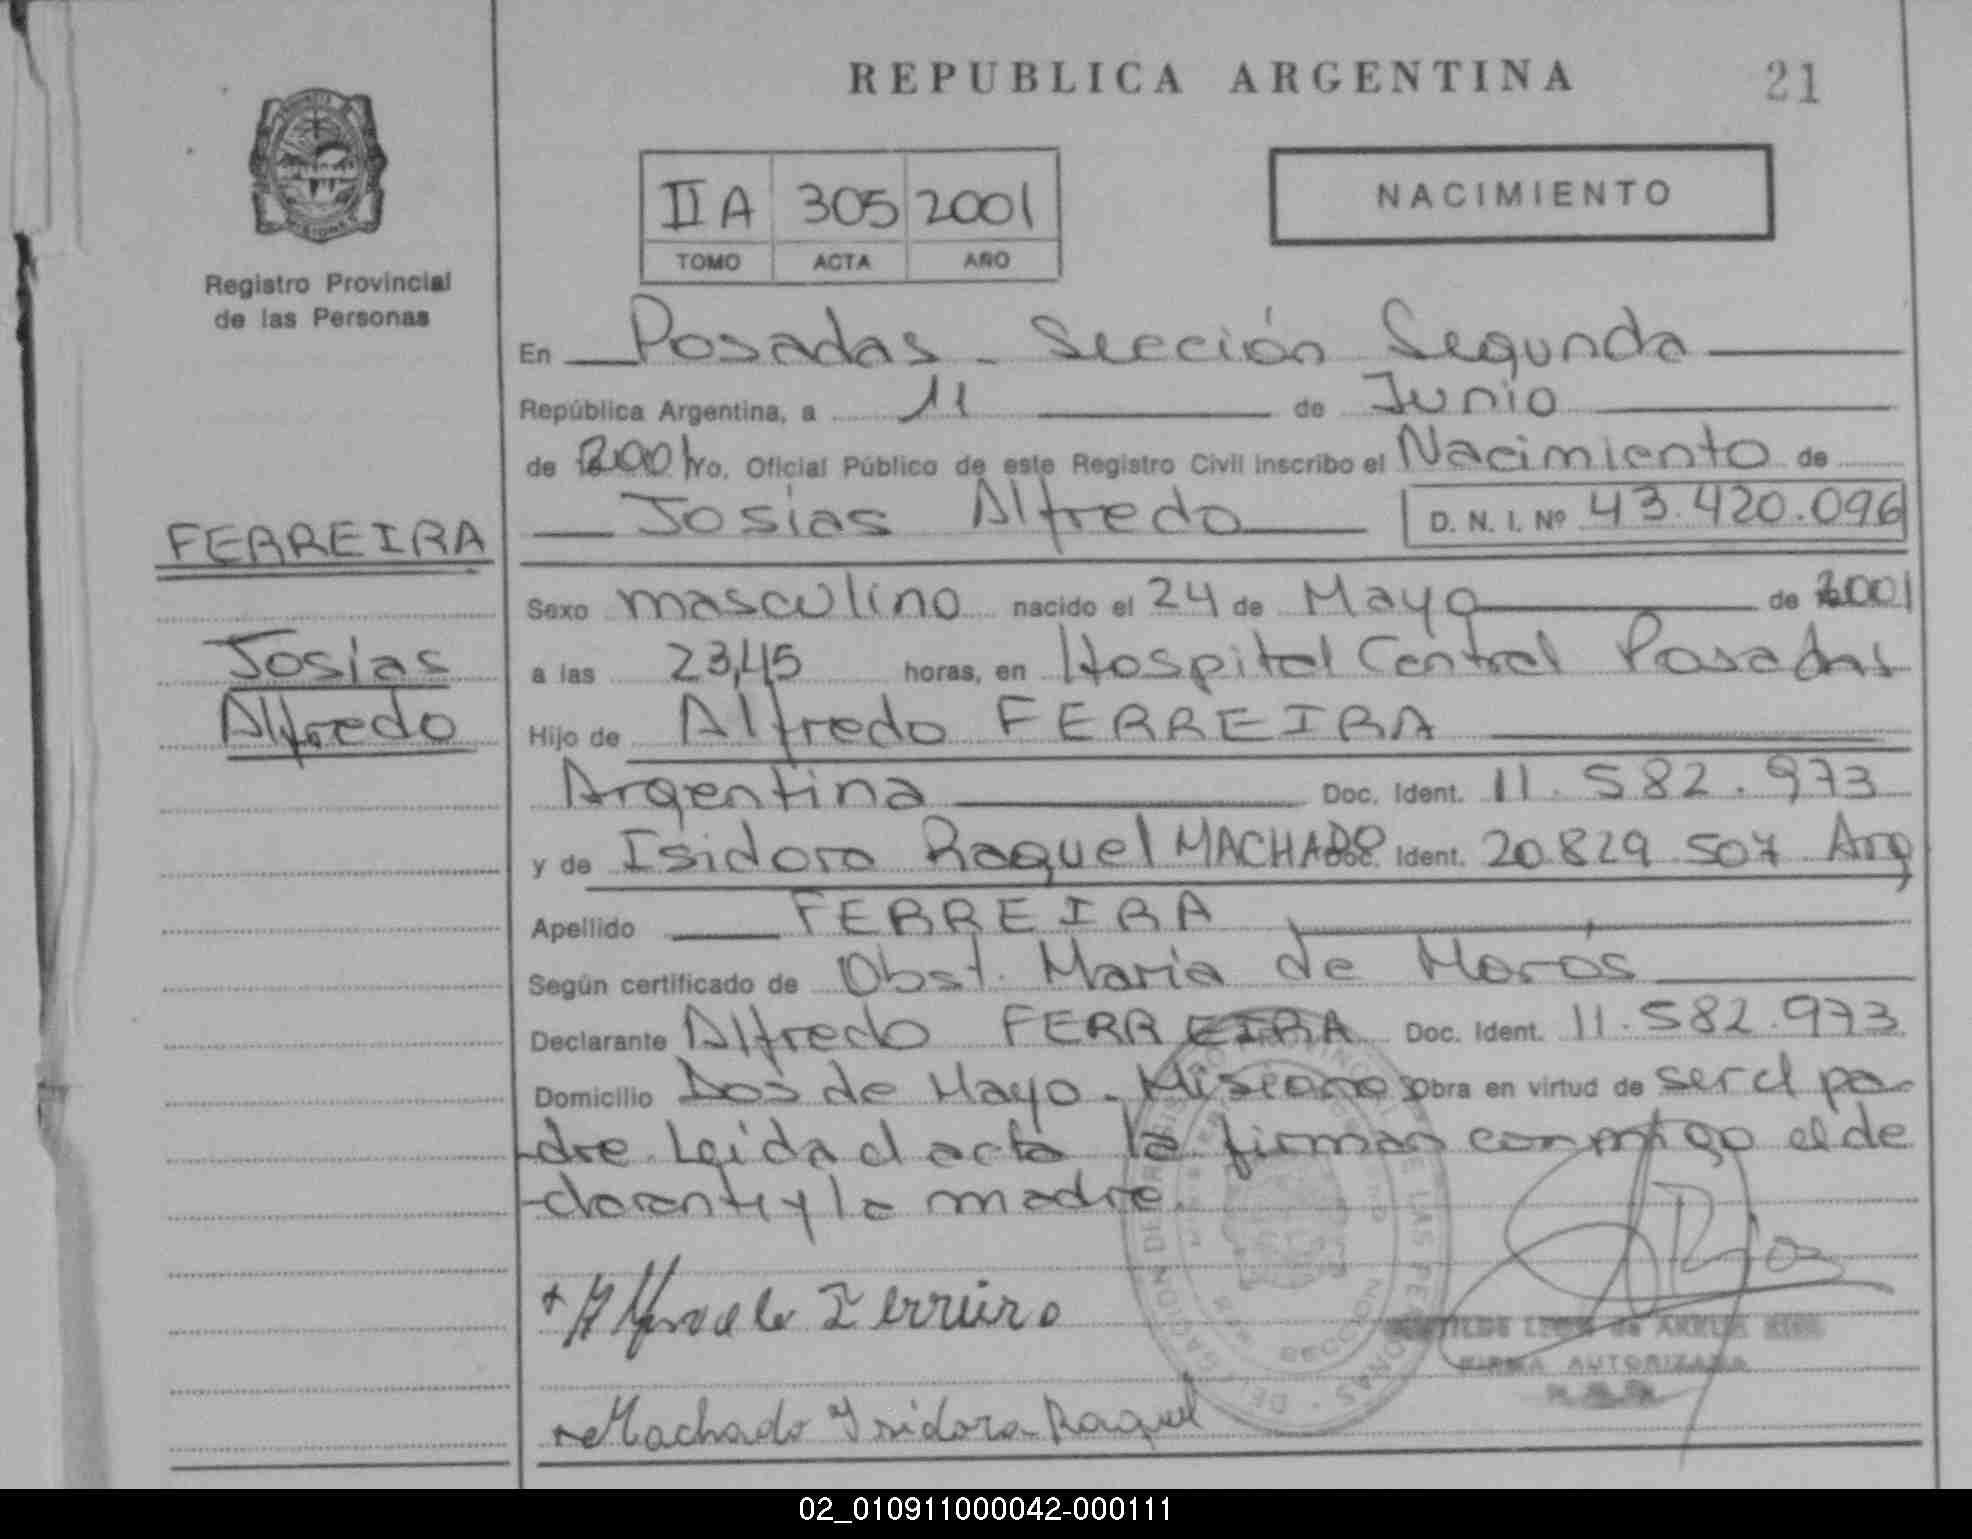 REPUBLICA ARGENTINA 21
IIA 305 2001
TOMO ACTA AÑO
NACIMIENTO
Registro Provincial
de las Personas
FERREIRA
Josias
Alfredo
En Posadas - Sección Segunda
República Argentina, a 11 de Junio
de 2001 Yo, Oficial Público de este Registro Civil inscribo el Nacimiento de
Josias Alfredo D. N. I. Nº 43.420.096
Sexo masculino nacido el 24 de Mayo de 2001
a las 23,45 horas, en Hospital Central Posadas
Hijo de Alfredo FERREIRA
Argentina Doc. Ident. 11.582.973
y de Isidora Raquel MACHADO Doc. Ident. 20.829.507 Arg
Apellido FERREIRA
Según certificado de Obst. Maria de Moros
Declarante Alfredo FERREIRA Doc. Ident. 11.582.973
Domicilio Dos de Mayo - Misiones Obra en virtud de ser el pa-
dre. Leida el acta la firman conmigo el de
clarante y la madre.
+ Alfredo Ferreira
Rios
FIRMA AUTORIZADA
Machado Isidora Raquel
DELEGACION DEL REGISTRO PROVINCIAL DE LAS PERSONAS
02_010911000042-000111